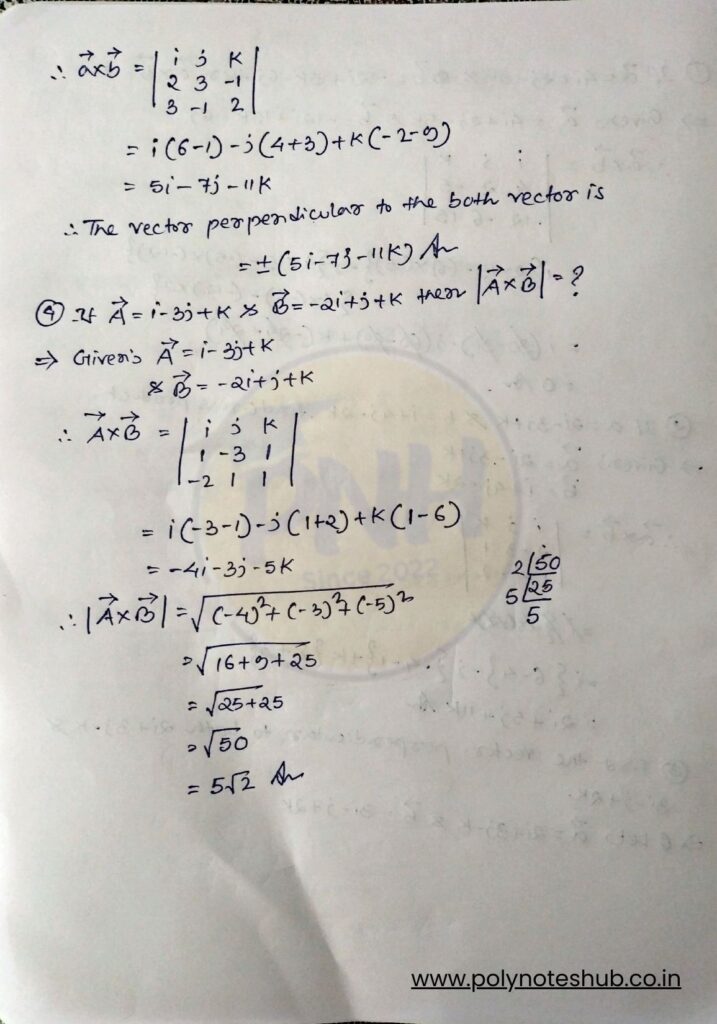 ∴ a⃗×b⃗ = | i j k |
| 2 3 -1 |
| 3 -1 2 |
= i(6-1) - j(4+3) + k(-2-9)
= 5i - 7j - 11k
∴ The vector perpendicular to the both vector is
= ± (5i - 7j - 11k) Ans
④ If A⃗ = i - 3j + k & B⃗ = -2i + j + k then |A⃗×B⃗| = ?
⇒ Given's A⃗ = i - 3j + k
& B⃗ = -2i + j + k
∴ A⃗×B⃗ = | i j k |
| 1 -3 1 |
| -2 1 1 |
= i(-3-1) - j(1+2) + k(1-6)
= -4i - 3j - 5k
∴ |A⃗×B⃗| = √(-4)² + (-3)² + (-5)²
= √16+9+25
= √25+25
= √50
= 5√2 Ans
2 | 50
5 | 25
5
PNH
since 2022
www.polynoteshub.co.in